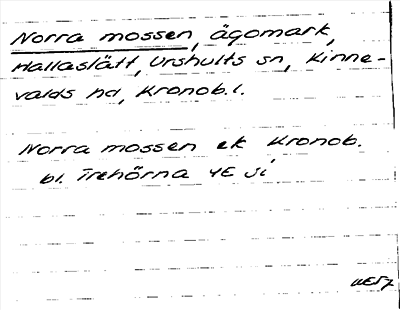 Norra mossen, ägomark,
Hallaslätt, Urshults sn, Kinne-
valds hd, Kronob. l.
Norra mossen ek Kronob.
bl. Trehörna 4E Ji